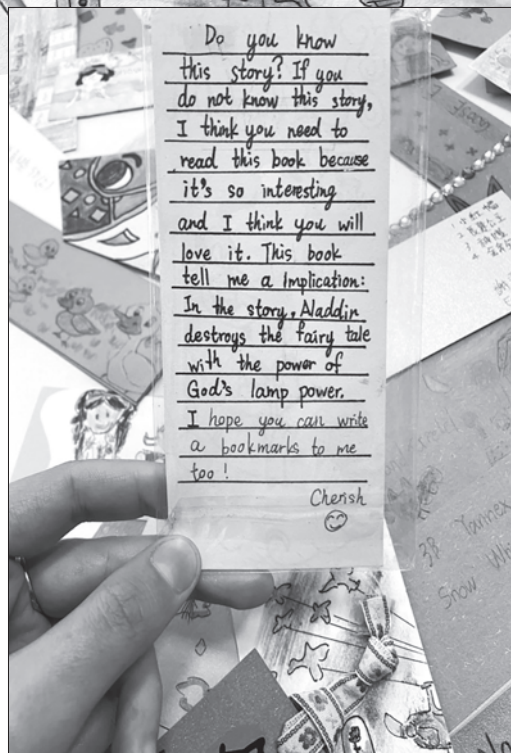 Do you know
this story? If you
do not know this story,
I think you need to
read this book because
it's so interesting
and I think you will
love it. This book
tell me a Implication:
In the story, Aladdin
destroys the fairy tale
with the power of
God's lamp power.
I hope you can write
a bookmarks to me
too!
Cherish
3B
Snow Whi